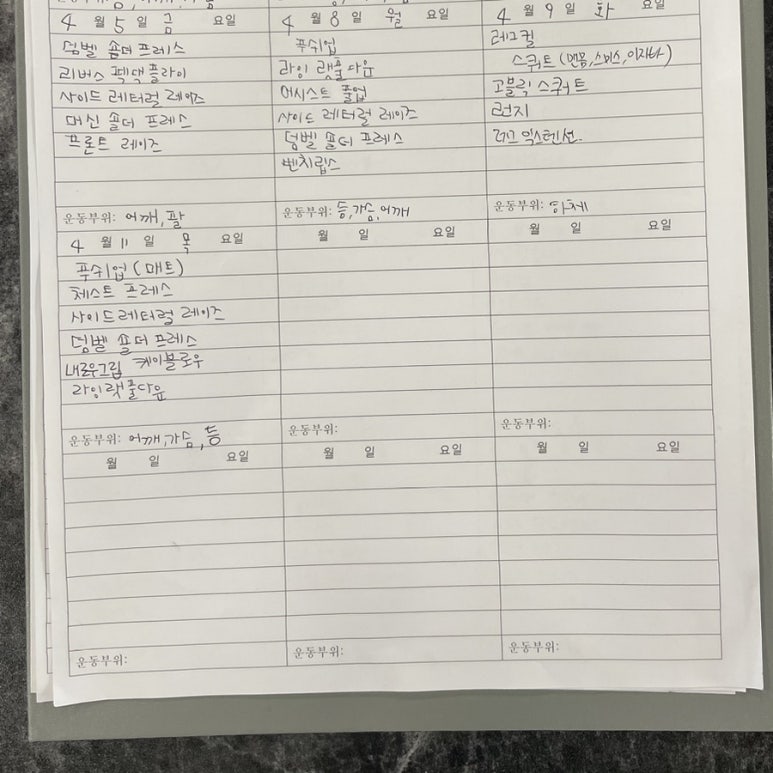 4 월 5 일 금 요일
덤벨 숄더 프레스
리버스 펙덱 플라이
사이드 레터럴 레이즈
머신 숄더 프레스
프론트 레이즈
운동부위: 어깨, 팔
4 월 8 일 월 요일
푸쉬업
라잉 랫풀다운
어시스트 풀업
사이드 레터럴 레이즈
덤벨 숄더 프레스
벤치딥스
운동부위: 등, 가슴, 어깨
4 월 9 일 화 요일
레그컬
스쿼트 (맨몸, 스미스, 이지바)
고블릿 스쿼트
런지
레그 익스텐션.
운동부위: 하체
4 월 11 일 목 요일
푸쉬업 (매트)
체스트 프레스
사이드레터럴 레이즈
덤벨 숄더 프레스
내로우그립 케이블로우
라잉랫풀다운
운동부위: 어깨, 가슴, 등
월 일 요일
운동부위:
월 일 요일
운동부위:
월 일 요일
운동부위:
월 일 요일
운동부위:
월 일 요일
운동부위: